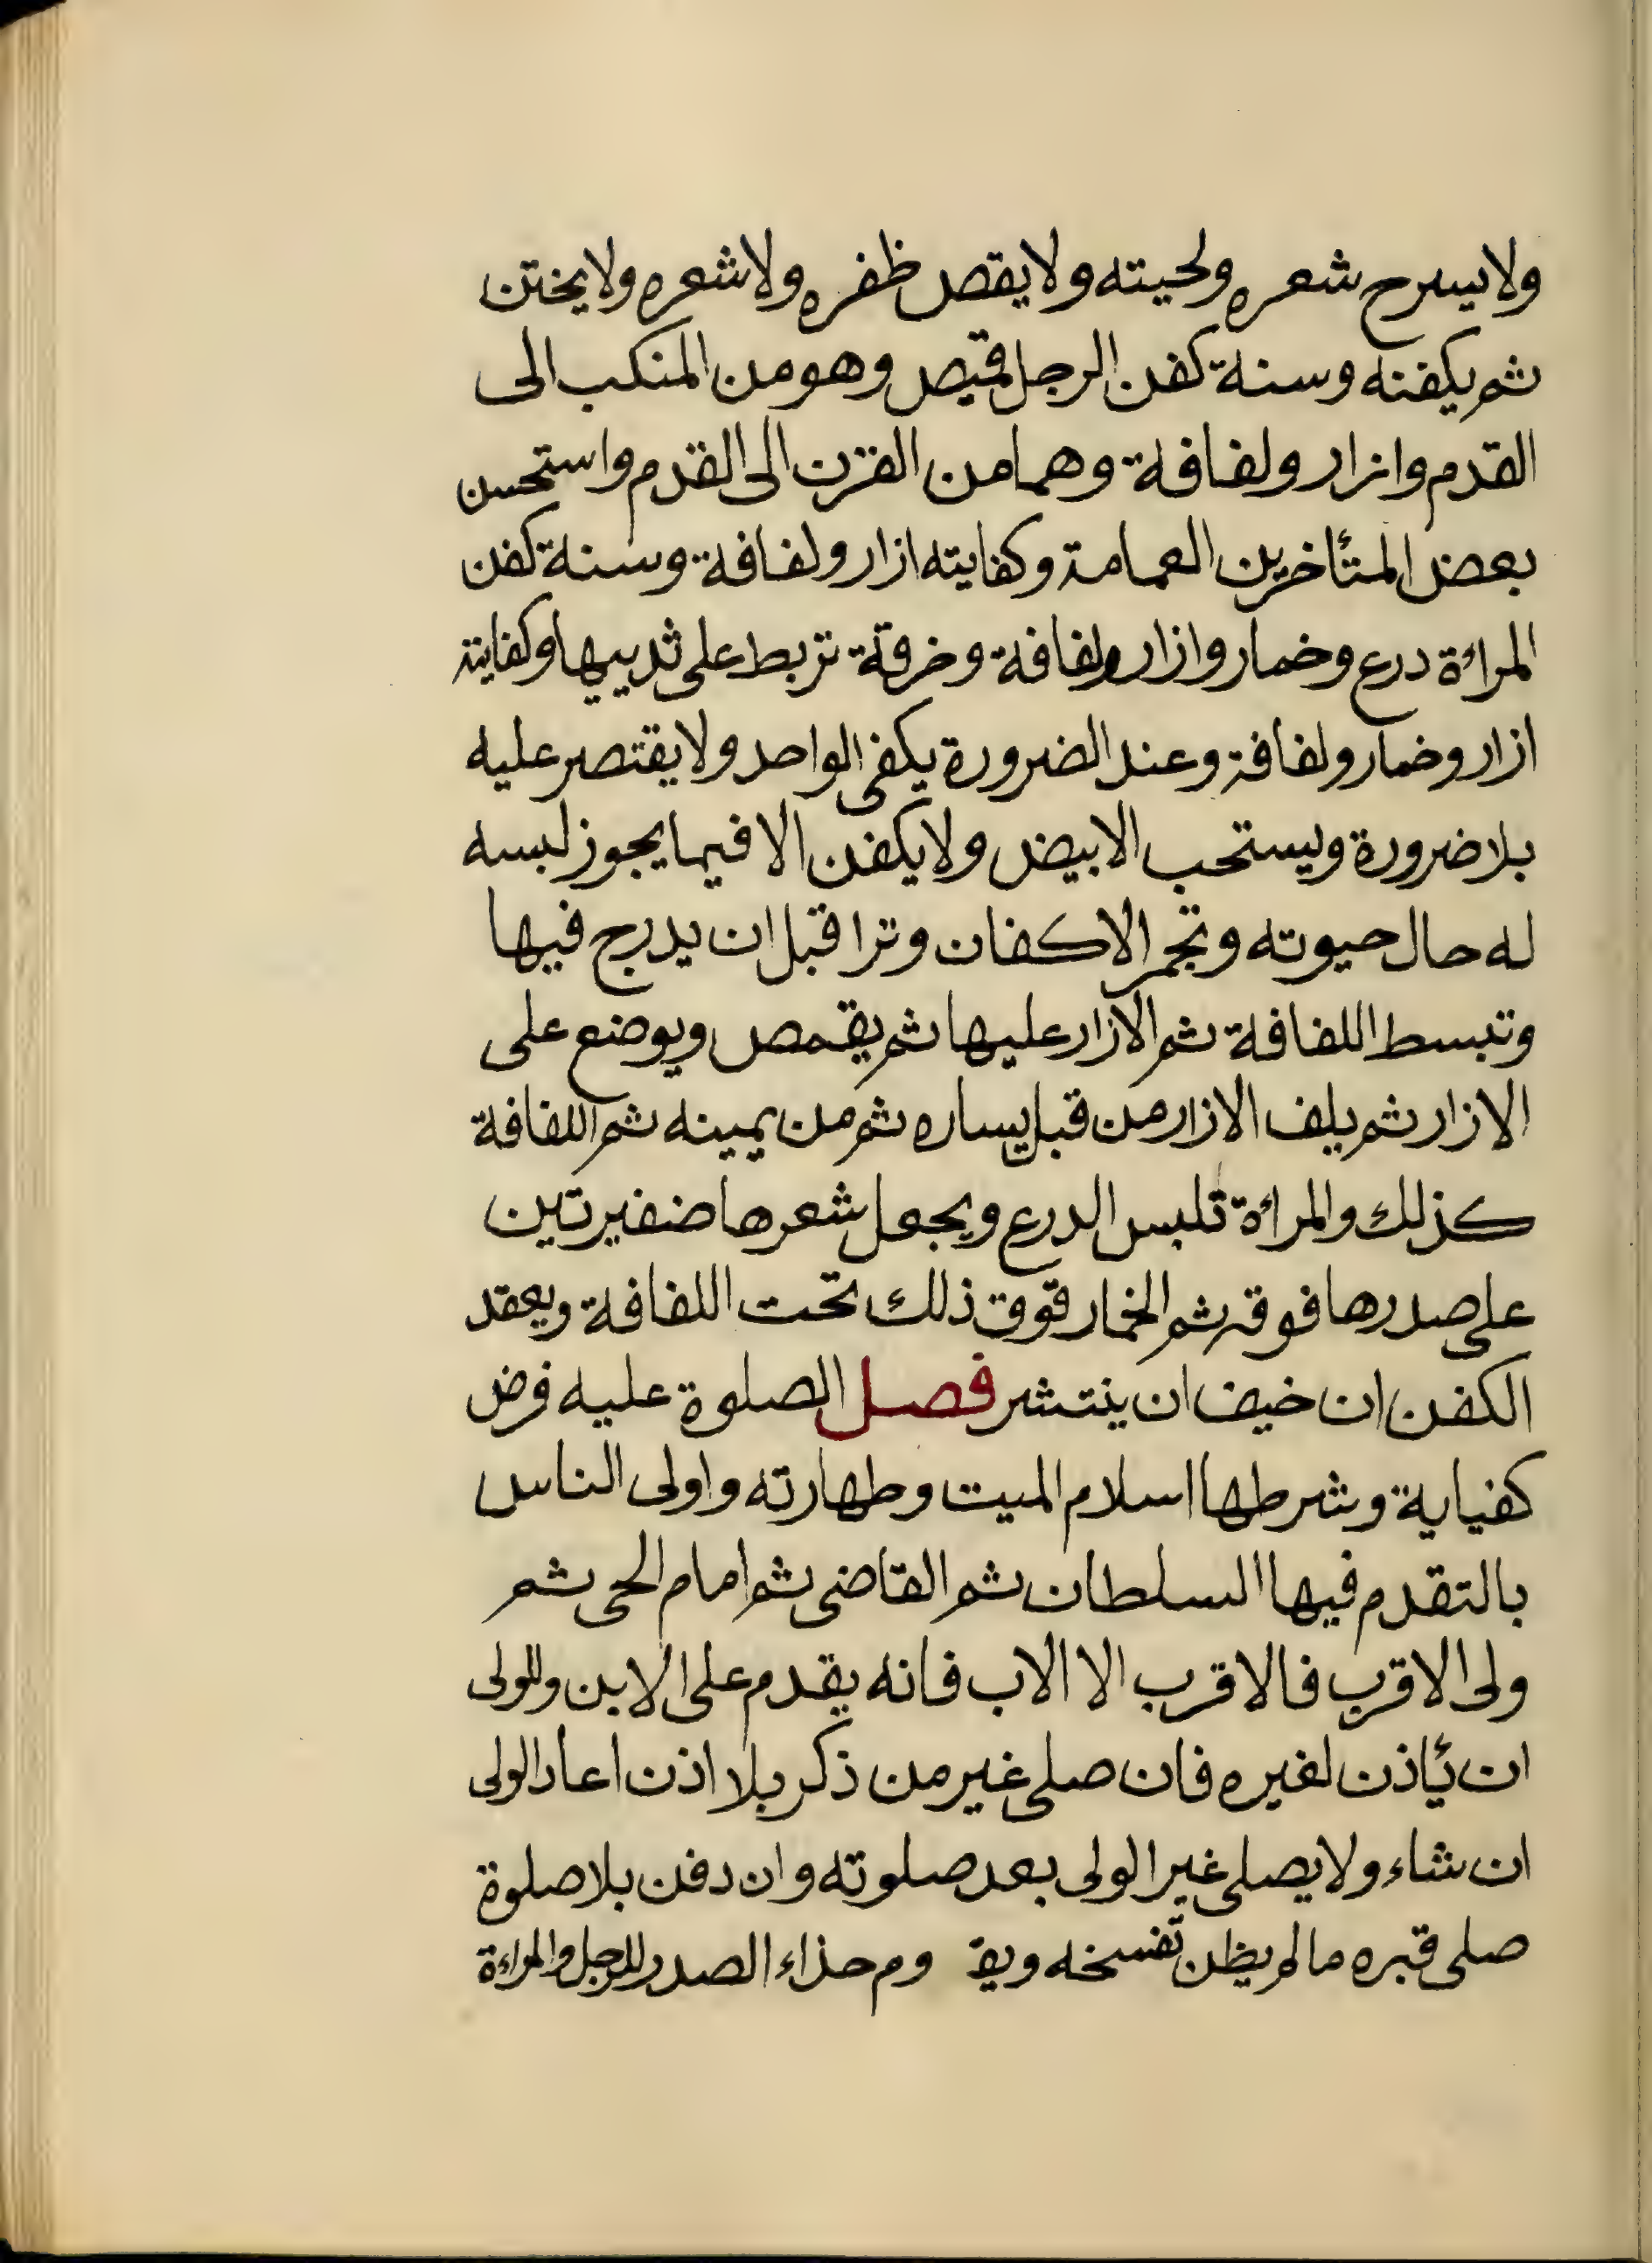 ولايسرح شعره ولحيته ولا يقص ظفره ولا شعره ولا يختن
ثم يكفنه وسنة كفن الرجل قميص وهو من المنكب الى
القدم وازار ولفافة وهما من القرن الى القدم واستحسن
بعض المتأخرين العمامة وكفايته ازار ولفافة وسنة كفن
المراءة درع وخمار وازار ولفافة وخرقة تربط على ثدييها وكفايته
ازار وخمار ولفافة وعند الضرورة يكفى الواحد ولا يقتصر عليه
بلا ضرورة ويستحب الابيض ولا يكفن الا فيما يجوز لبسه
له حال حيوته وتجمر الاكفان وترا قبل ان يدرج فيها
وتبسط اللفافة ثم الازار عليها ثم يقمص ويوضع على
الازار ثم يلف الازار من قبل يساره ثم من يمينه ثم اللفافة
كذلك والمراءة تلبس الدرع ويجعل شعرها ضفيرتين
على صدرها فوقه ثم الخمار فوق ذلك تحت اللفافة ويعقد
الكفن ان خيف ان ينتشر فصل الصلوة عليه فرض
كفياية وشرطها اسلام الميت وطهارته واولى الناس
بالتقدم فيها السلطان ثم القاضى ثم امام الحى ثم
ولى الاقرب فالاقرب الا الاب فانه يقدم على الابن وللولى
ان يأذن لغيره فان صلى غير من ذكر بلا اذن اعاد الولى
ان شاء ولا يصلى غير الولى بعد صلوته وان دفن بلا صلوة
صلى قبره ما لم يظن تفسخه ويقوم حذاء الصدر للرجل والمراءة